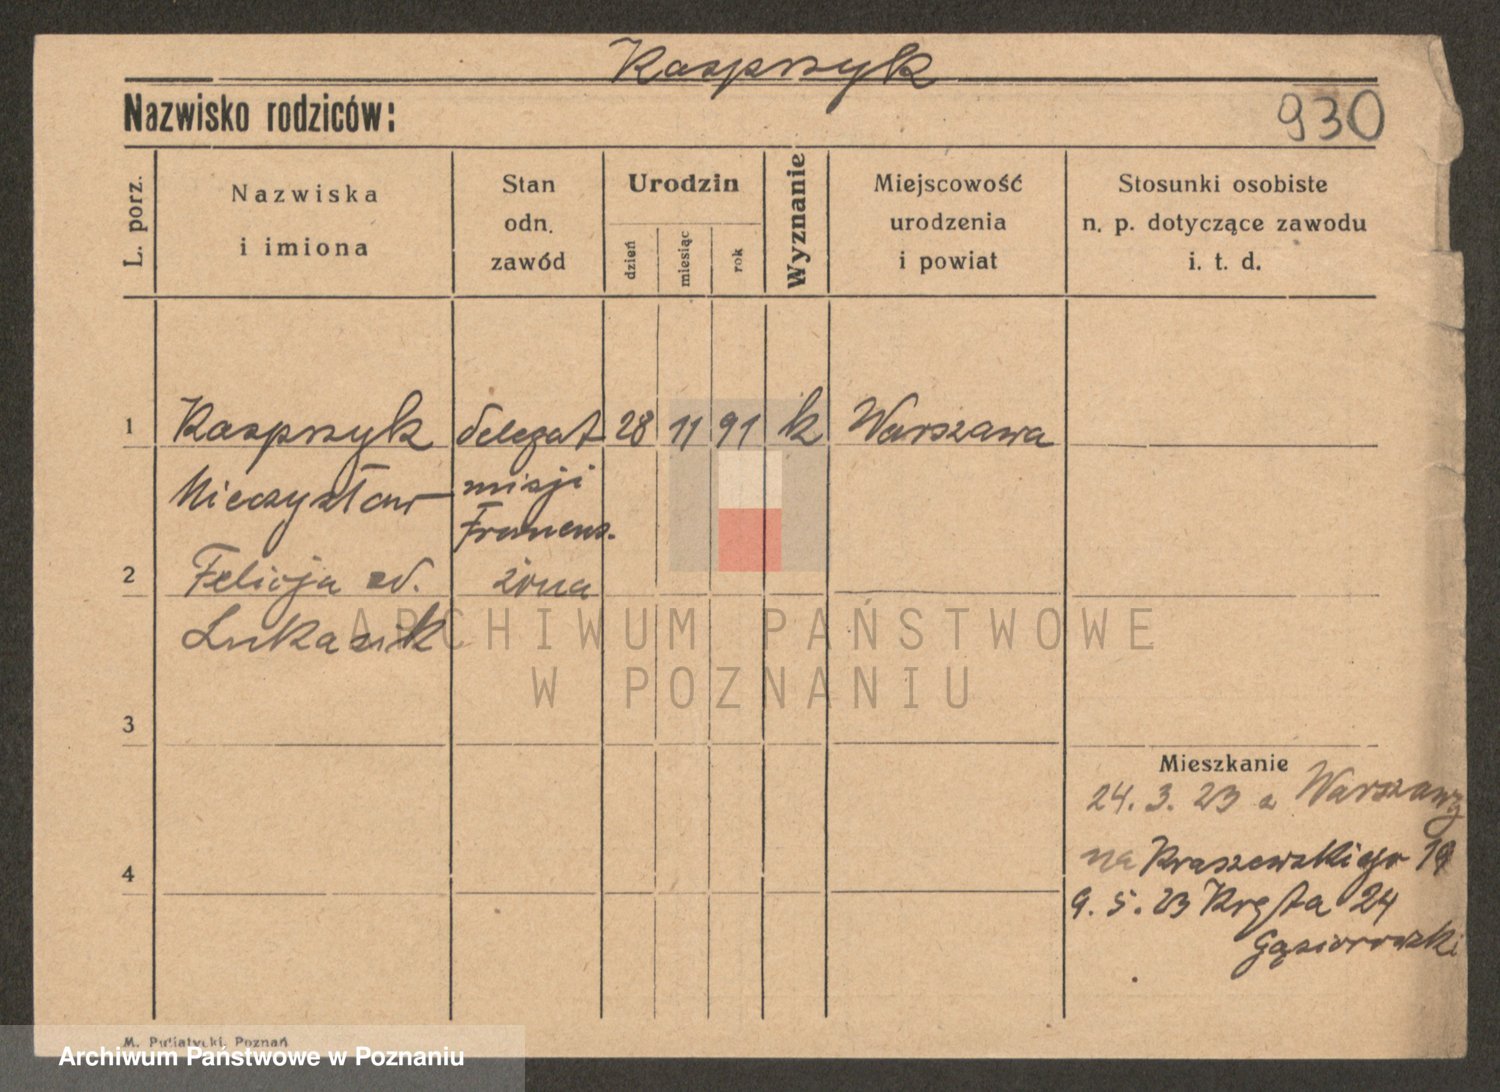 Kasprzyk
Nazwisko rodziców:
930
L. porz.
Nazwiska
i imiona
Stan
odn.
zawód
Urodzin
dzień
miesiąc
rok
Wyznanie
Miejscowość
urodzenia
i powiat
Stosunki osobiste
n. p. dotyczące zawodu
i. t. d.
1 Kasprzyk delegat 28 11 91 k Warszawa
Mieczysław misji
Francus.
2 Felicja żona
ARCHIWUM PAŃSTWOWE
W POZNANIU
3
Mieszkanie
24. 3. 23 z Warszawy
na Kraszewskiego
4
9. 5. 23 Kręta 24
Gąsiorowski
M. Putiatycki, Poznań
Archiwum Państwowe w Poznaniu